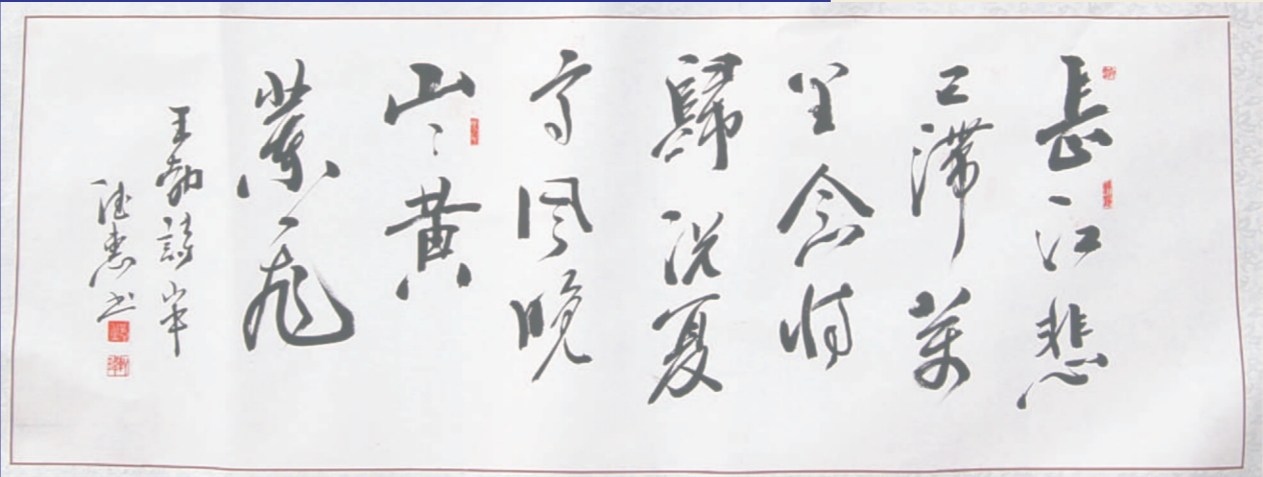 長江悲
已滯萬
里念將
歸況夏
高風晚
山々黃
葉飛
王勃詩山中
惠书